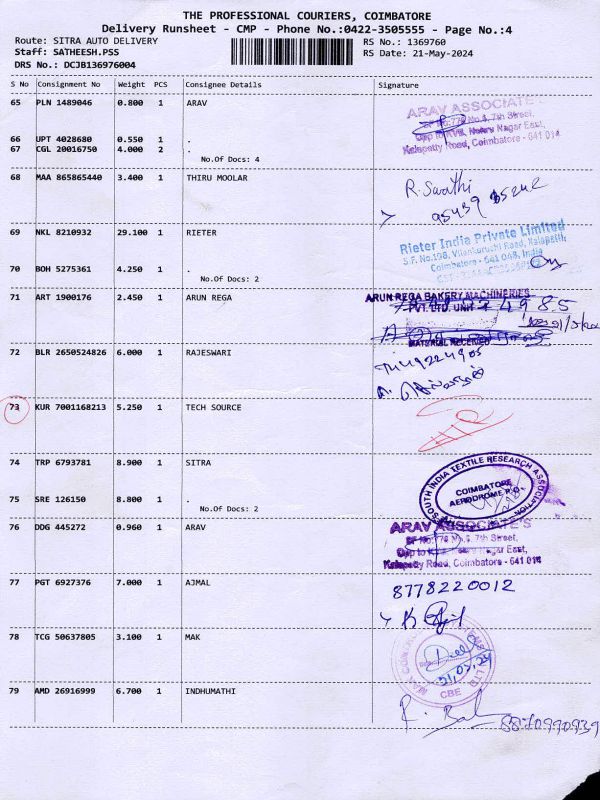 THE PROFESSIONAL COURIERS, COIMBATORE
Delivery Runsheet - CMP - Phone No.:0422-3505555 - Page No.:4
Route: SITRA AUTO DELIVERY RS No.: 1369760
Staff: SATHEESH.PSS RS Date: 21-May-2024
DRS No.: DCJB136976004
S No Consignment No Weight PCS Consignee Details Signature
65 PLN 1489046 0.800 1 ARAV
ARAV ASSOCIATE'S
SF No:776 No.6, 7th Street,
Opp to KVB, Nehru Nagar East,
Kalapatty Road, Coimbatore - 641 014
66 UPT 4028680 0.550 1 .
67 CGL 20016750 4.000 2 .
No.Of Docs: 4
68 MAA 865865440 3.400 1 THIRU MOOLAR
R. Swathi
95439 35242
69 NKL 8210932 29.100 1 RIETER
Rieter India Private Limited
S.F. No.198, Vilankuruchi Road, Kalapatti,
Coimbatore - 641 048, India
70 BOH 5275361 4.250 1 .
No.Of Docs: 2
71 ART 1900176 2.450 1 ARUN REGA
ARUN REGA BAKERY MACHINERIES
PVT. LTD. UNIT
MATERIAL RECEIVED
72 BLR 2650524826 6.000 1 RAJESWARI
73 KUR 7001168213 5.250 1 TECH SOURCE
74 TRP 6793781 8.900 1 SITRA
SOUTH INDIA TEXTILE RESEARCH ASSOCIATION
COIMBATORE
AERODROME P.O.
75 SRE 126150 8.800 1 .
No.Of Docs: 2
76 DDG 445272 0.960 1 ARAV
ARAV ASSOCIATE'S
SF No:776 No.6, 7th Street,
Opp to KVB, Nehru Nagar East,
Kalapatty Road, Coimbatore - 641 014
77 PGT 6927376 7.000 1 AJMAL
8778220012
78 TCG 50637805 3.100 1 MAK
21/05/24
CBE
79 AMD 26916999 6.700 1 INDHUMATHI
8870990939